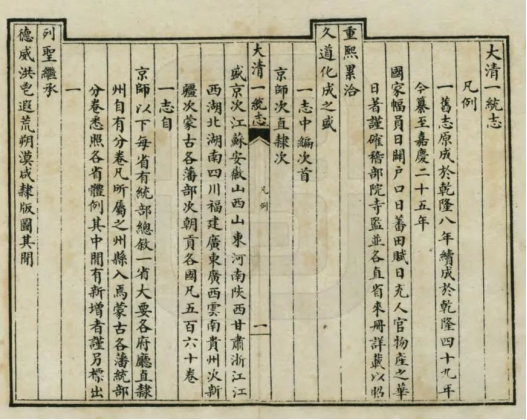 大清一統志
凡例
一舊志原成於乾隆八年續成於乾隆四十九年
今纂至嘉慶二十五年
國家幅員日闢戶口日蕃田賦日充人官物產之華
日著謹確稽部院寺監並各直省來冊詳載以昭
重熙累洽
久道化成之盛
一志中編次首
京師次直隸次
大清一統志
凡例
一
盛京次江蘇安徽山西山東河南陝西甘肅浙江江
西湖北湖南四川福建廣東廣西雲南貴州次新
疆次蒙古各藩部次朝貢各國凡五百六十卷
一志自
京師以下每省有統部總敘一省大要各府廳直隸
州自有分卷凡所屬之州縣入焉蒙古各藩統部
分卷悉照各省體例其中間有新增者謹另標出
一
列聖繼承
德威洪鬯遐荒朔漠咸隸版圖其開